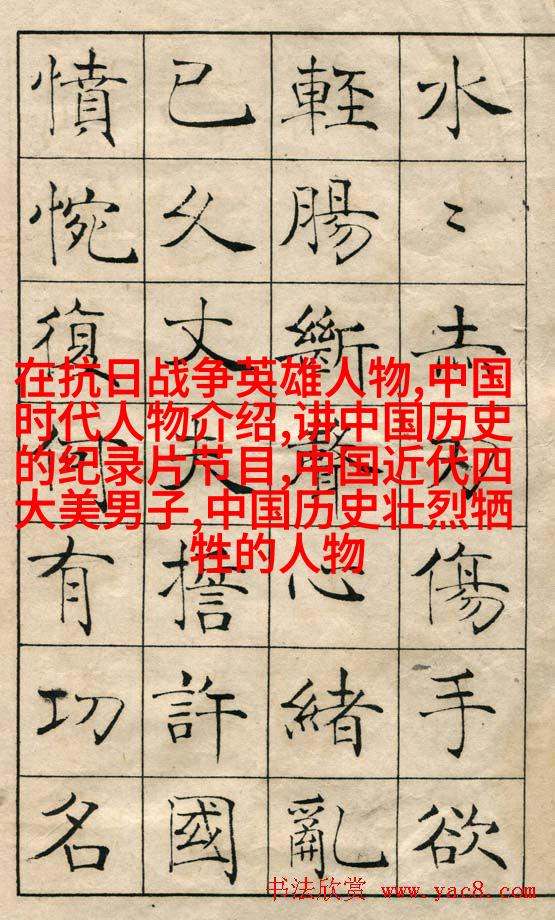 水〻赤刃傷手欲
輕腸斷聲心緒亂
已久丈夫誓許國
憤惋復何有功名
在抗日战争英雄人物,中国
时代人物介绍,讲中国历史
的纪录片节目,中国近代四
大美男子,中国历史壮烈牺
牲的人物
书法欣赏 www.yac8.com